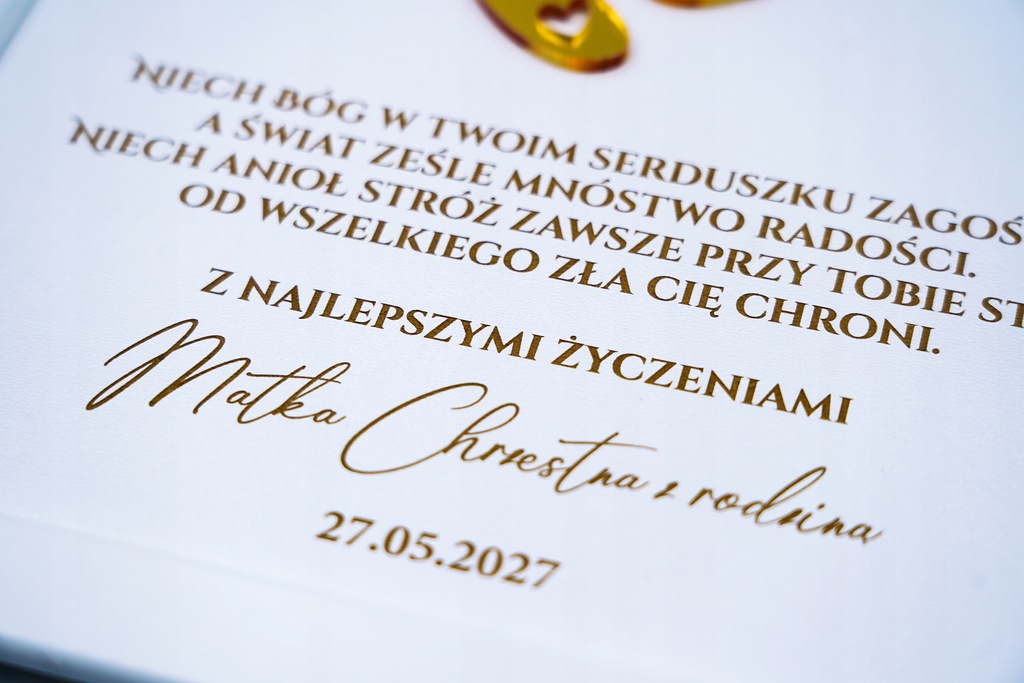 Niech Bóg w Twoim serduszku
a świat ześle mnóstwo radości.
Niech Anioł Stróż zawsze przy Tobie
od wszelkiego zła Cię chroni.
Z najlepszymi życzeniami
Matka Chrzestna z rodzina
27.05.2027